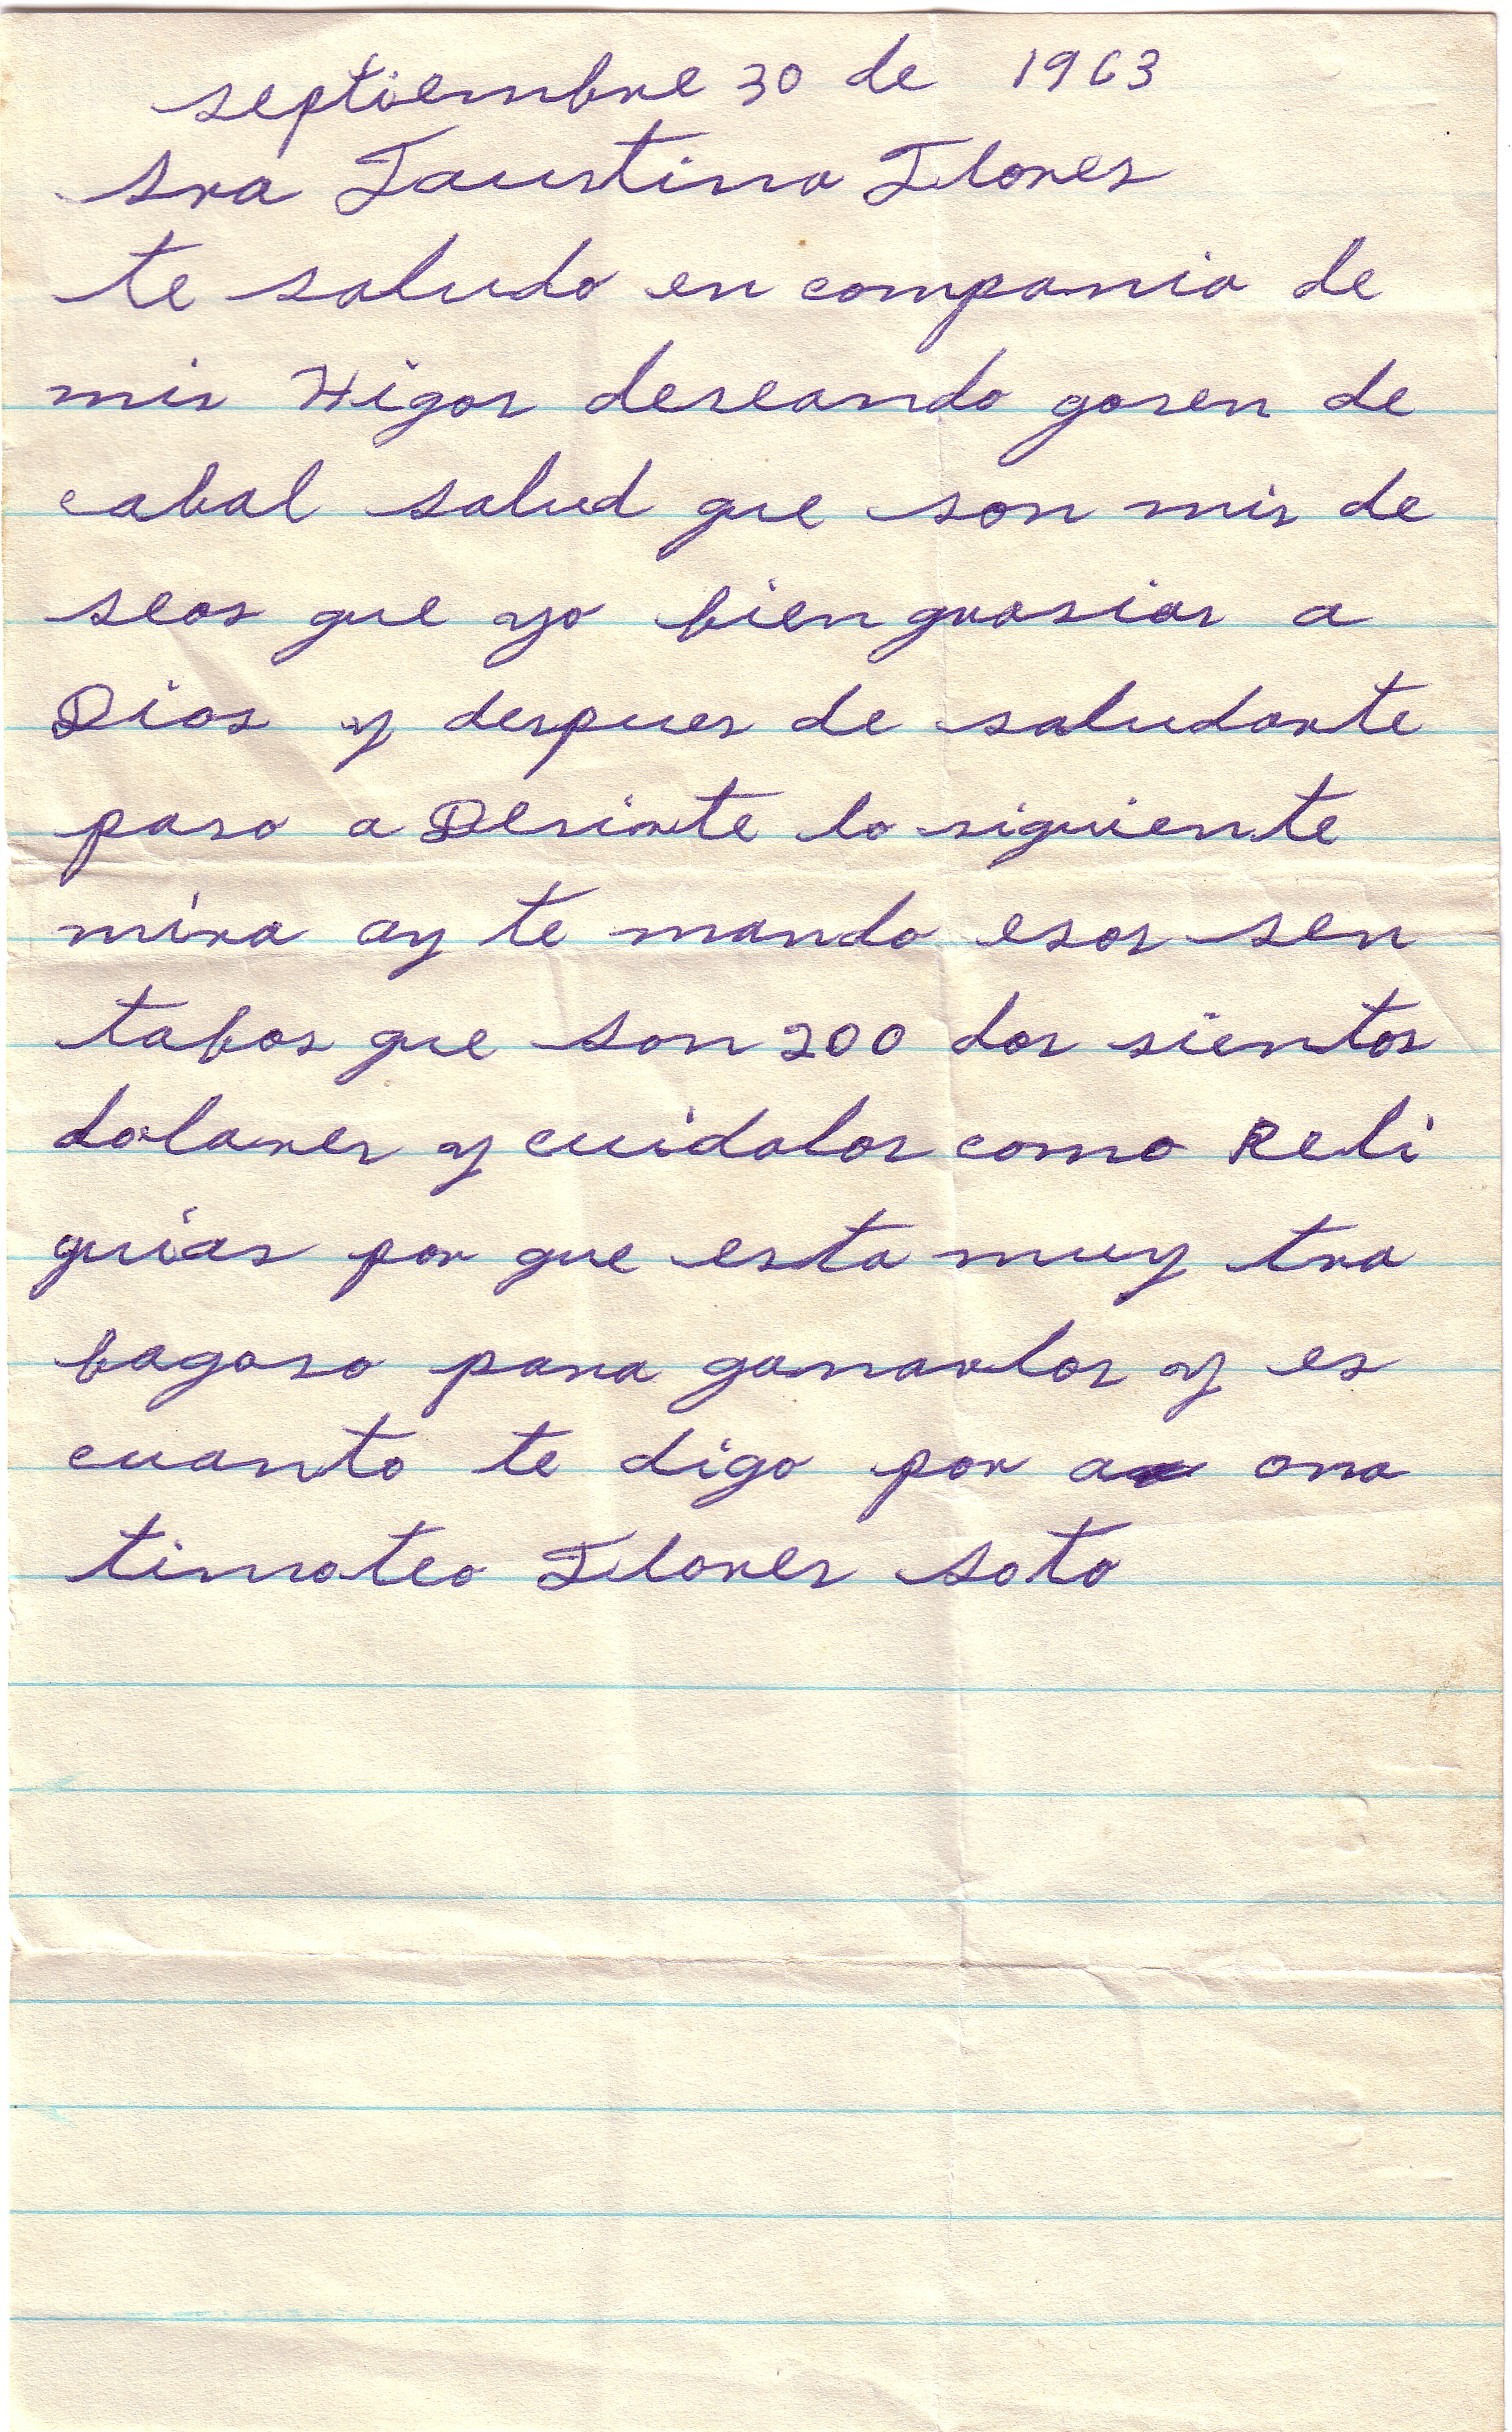 septiembre 30 de 1963
sra Faustina Flores
te saludo en compania de
mis Higos deseando gosen de
cabal salud que son mis de
seos que yo bien grasias a
Dios y despues de saludarte
paso a Desirte lo siguiente
mira ay te mando esos sen
tabos que son 200 dos sientos
dolares y cuidalos como Reli
quias por que esta muy tra
bagoso para ganarlos y es
cuanto te digo por a ora
timoteo Flores soto